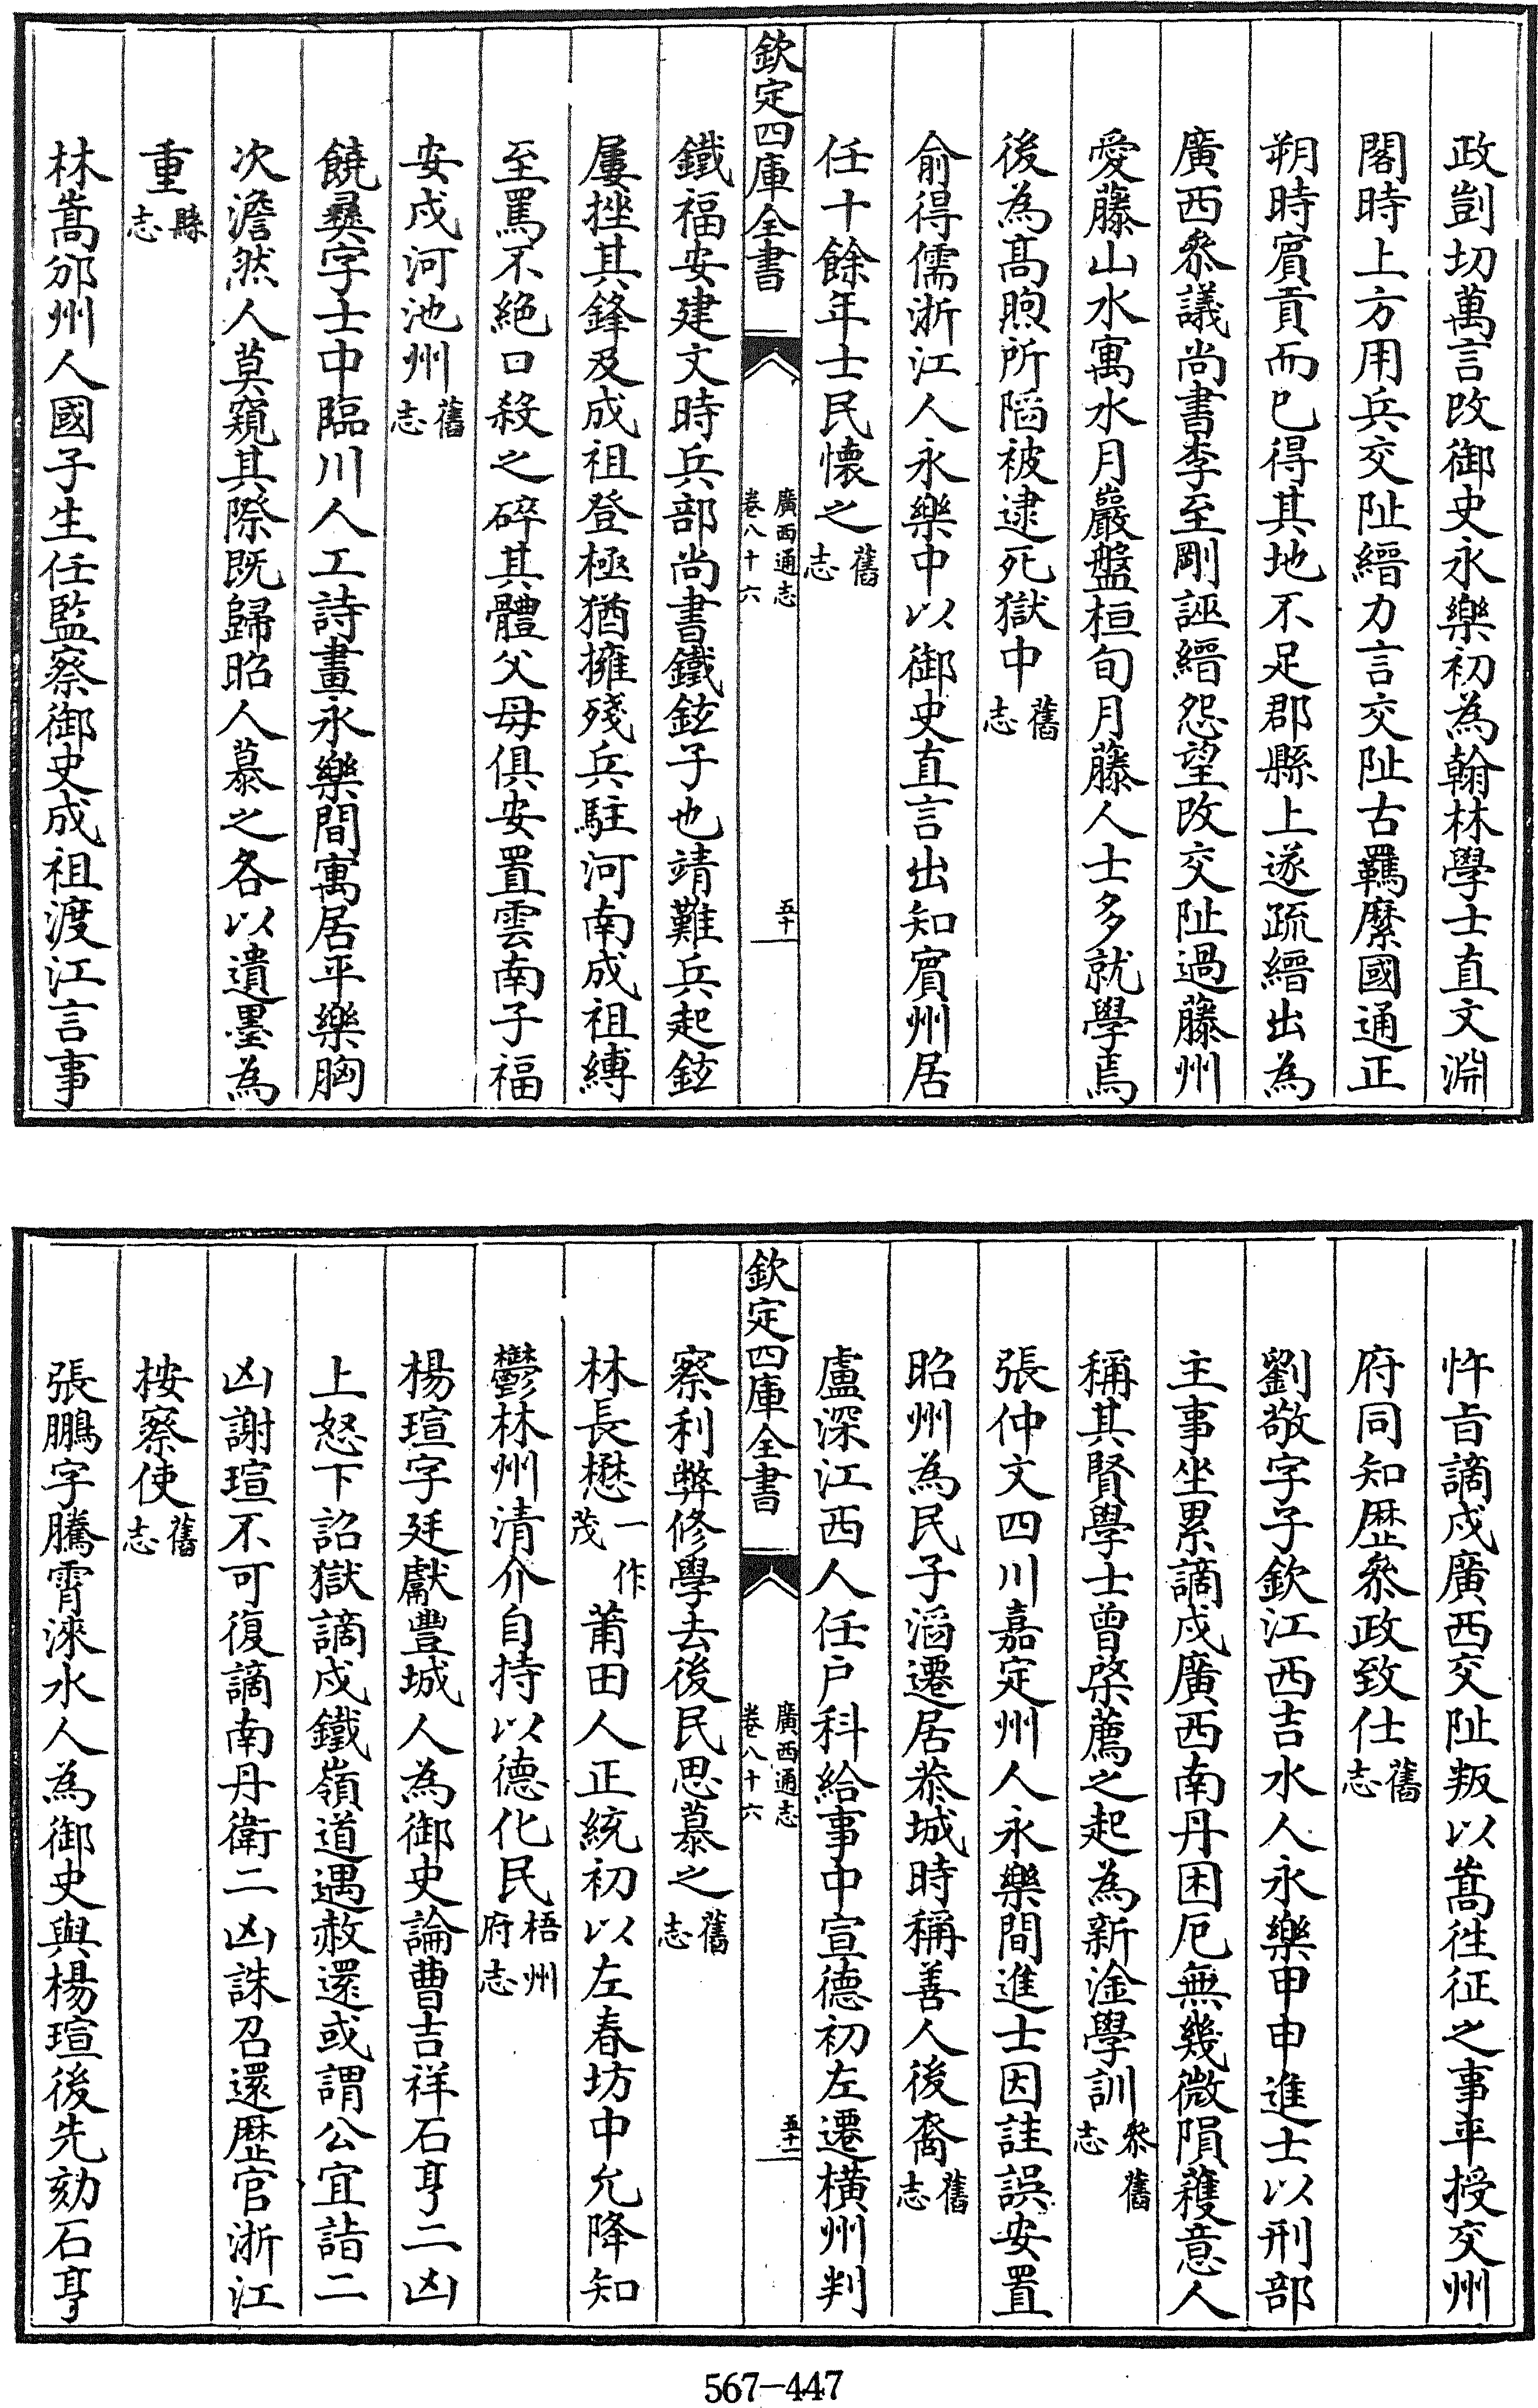 政剴切萬言改御史永樂初為翰林學士直文淵
閣時上方用兵交阯縉力言交阯古羈縻國通正
朔時賔貢而已得其地不足郡縣上遂疏縉出為
廣西叅議尚書李至剛誣縉怨望改交阯過藤州
愛藤山水寓水月巖盤桓旬月藤人士多就學焉
後為髙煦所陷被逮死獄中舊志
俞得儒浙江人永樂中以御史直言出知賔州居
任十餘年士民懐之舊志
欽定四庫全書
廣西通志
卷八十六
五十
鐵福安建文時兵部尚書鐵鉉子也靖難兵起鉉
屢挫其鋒及成祖登極猶擁殘兵駐河南成祖縛
至罵不絶口殺之碎其體父母俱安置雲南子福
安戍河池州舊志
饒彞字士中臨川人工詩畫永樂間寓居平樂胸
次澹然人莫窺其際既歸昭人慕之各以遺墨為
重縣志
林嵩邠州人國子生任監察御史成祖渡江言事
忤㫖謫戍廣西交阯叛以嵩徃征之事平授交州
府同知歴叅政致仕舊志
劉敬字子欽江西吉水人永樂甲申進士以刑部
主事坐累謫戍廣西南丹困厄無幾微隕穫意人
稱其賢學士曾棨薦之起為新淦學訓叅舊志
張仲文四川嘉定州人永樂間進士因詿誤安置
昭州為民子滔遷居恭城時稱善人後裔舊志
盧深江西人任户科給事中宣德初左遷横州判
欽定四庫全書
廣西通志
卷八十六
五十一
察利弊修學去後民思慕之舊志
林長懋一作茂莆田人正統初以左春坊中允降知
鬱林州清介自持以德化民梧州府志
楊瑄字廷獻豐城人為御史論曹吉祥石亨二凶
上怒下詔獄謫戍鐵嶺道遇赦還或謂公宜詣二
凶謝瑄不可復謫南丹衛二凶誅召還歴官浙江
按察使舊志
張鵬字騰霄淶水人為御史與楊瑄後先劾石亨
567-447